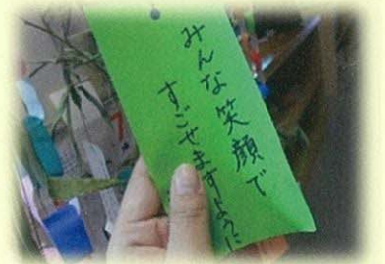 みんな笑顔で
すごせますように